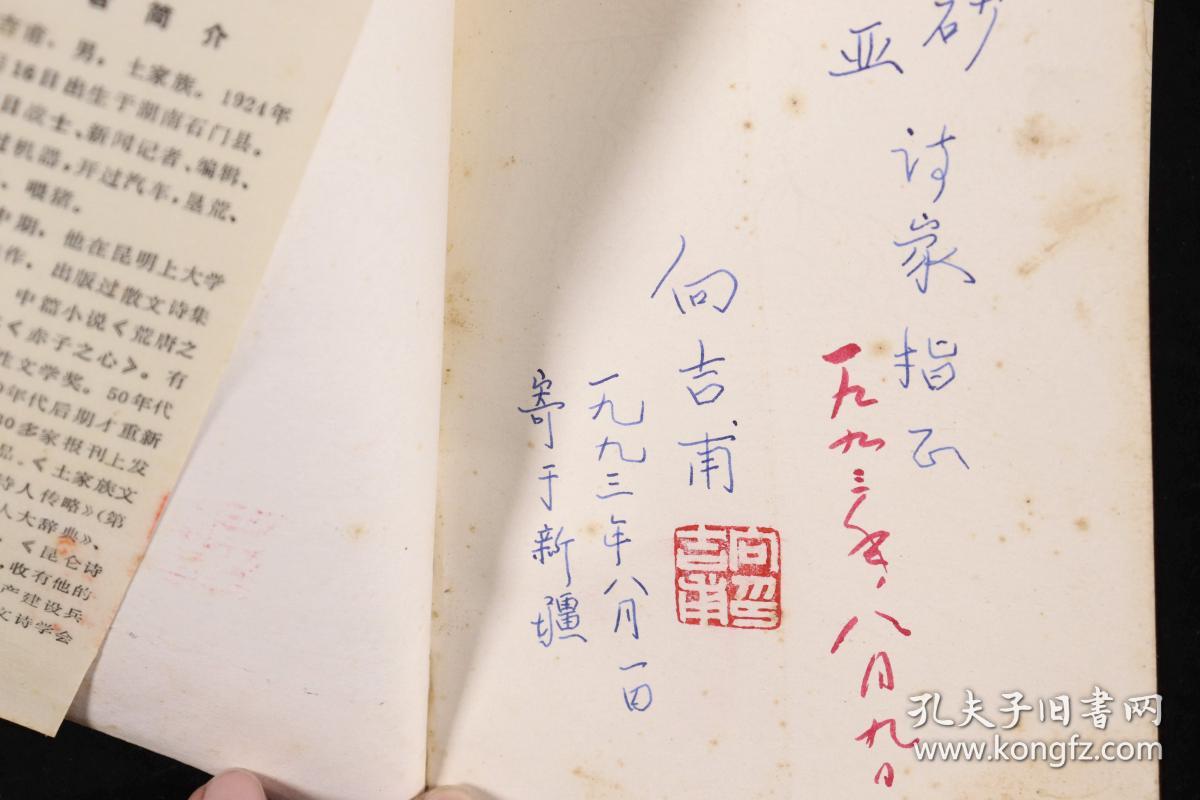 简介
男,土家族,1924年
16日出生于湖南石门县。
新闻记者、编辑,
机器,开过汽车,垦荒、
喂猪。
中期,他在昆明上大学
作,出版过散文诗集
中篇小说《荒唐之
《赤子之心》。有
文学奖。50年代
年代后期才重新
80多家报刊上发
品。《土家族文
诗人传略》(第
人大辞典》、
《昆仑诗
,收有他的
产建设兵
文诗学会
砂
亚
诗家指正
一九九三年,八月九日
向吉甫
一九九三年八月一日
寄于新疆
向吉甫印
孔夫子旧书网
www.kongfz.com